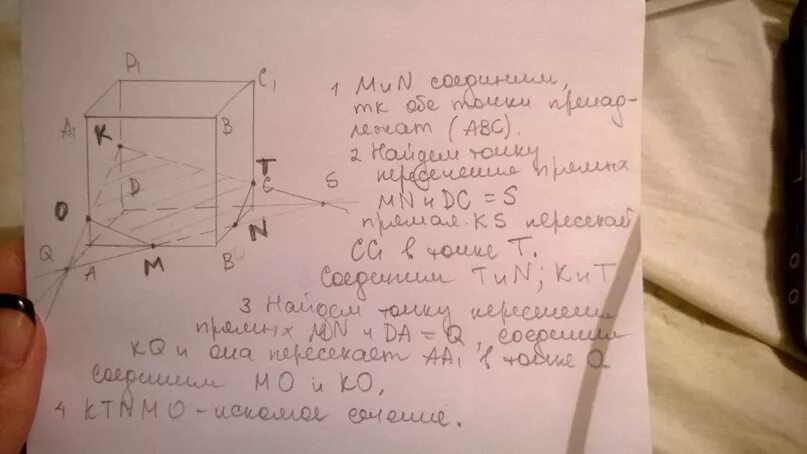 D₁
C₁
A₁
B
K
T
C
S
D
O
N
Q
A
M
B
1 М и N соединим,
тк обе точки принад-
лежат (ABC).
2 Найдем точку
пересечения прямых
MN и DC = S
прямая KS пересекай
CC₁ в точке T.
Соединим T и N; K и T
3 Найдем точку пересечения
прямых MN и DA = Q, соединим
KQ и она пересекает AA₁ в точке O
соединим MO и KO.
4 KTNMO - искомое сечение.